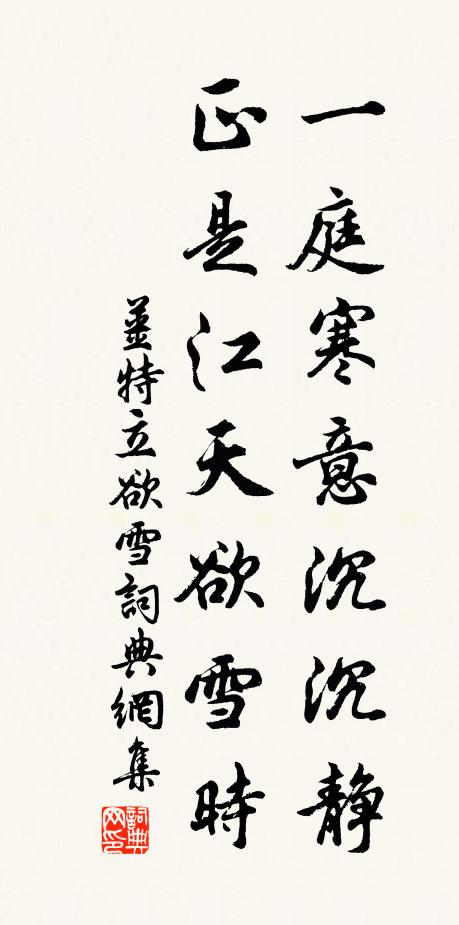 一庭寒意沉沉静
正是江天欲雪時
姜特立欲雪詞典網集
詞典
网印